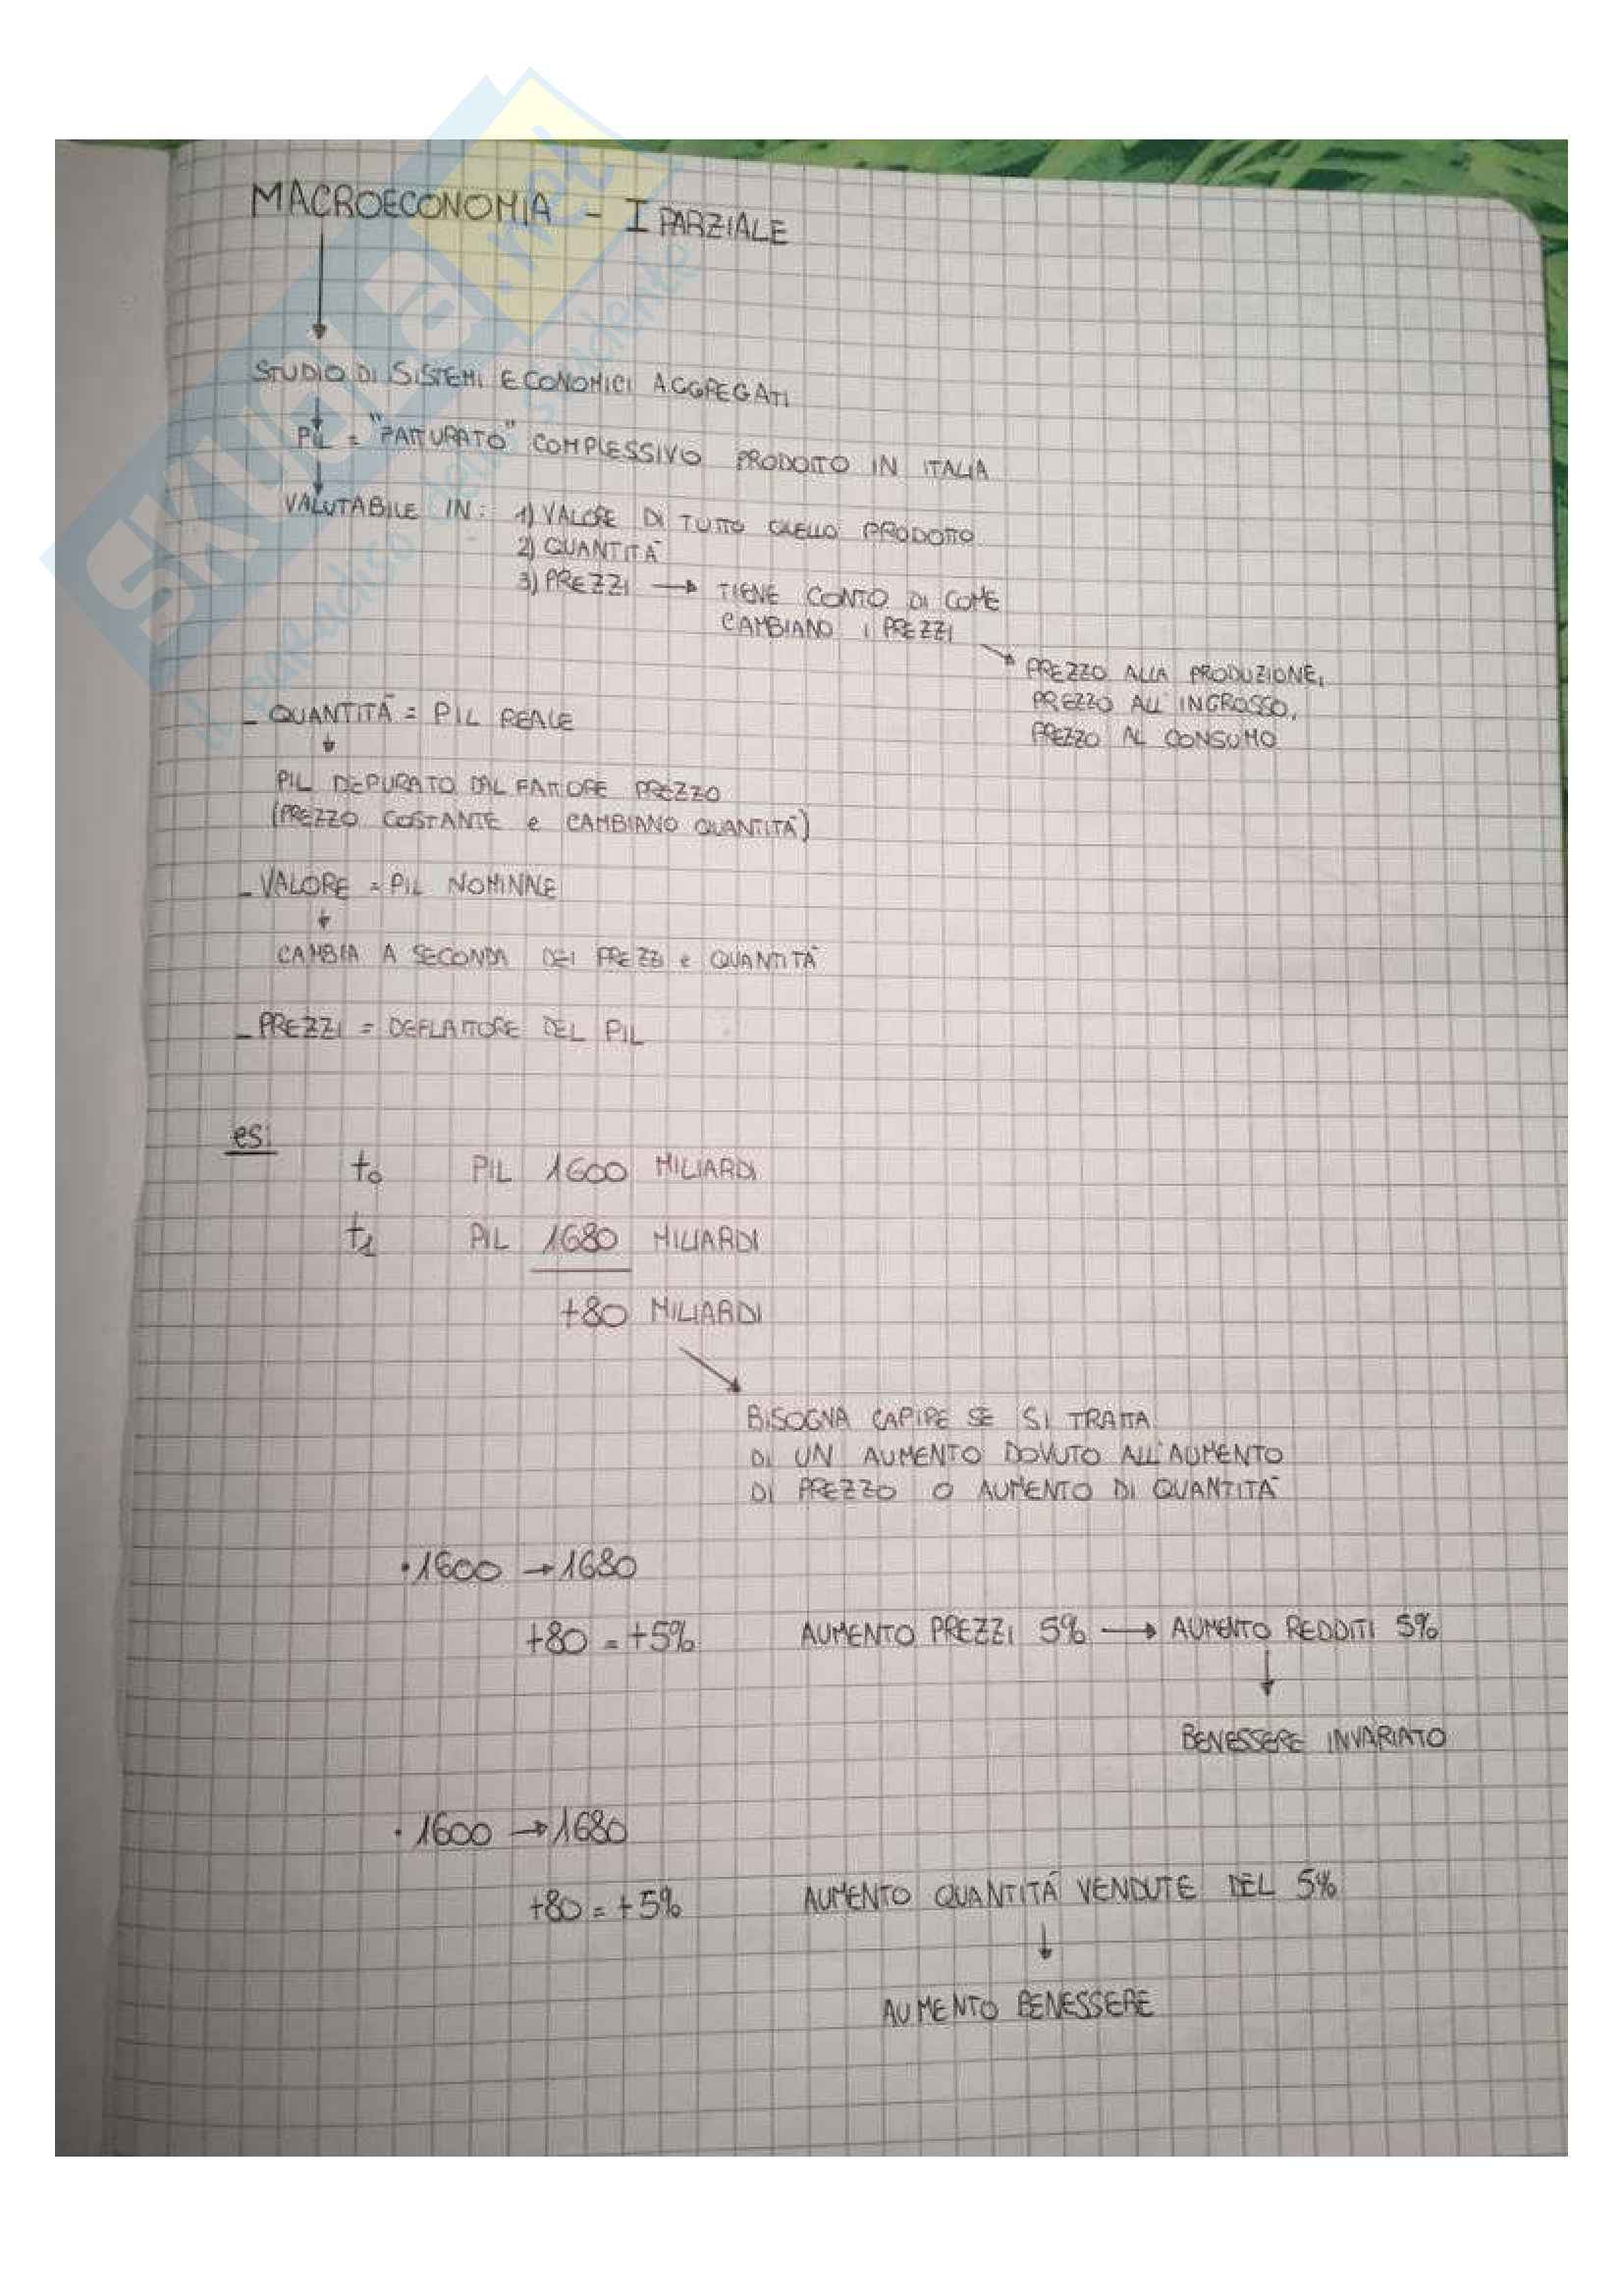 MACROECONOMIA - I PARZIALE
STUDIO DI SISTEMI ECONOMICI AGGREGATI
PIL = "FATTURATO" COMPLESSIVO PRODOTTO IN ITALIA
VALUTABILE IN: 1) VALORE DI TUTTO QUELLO PRODOTTO
2) QUANTITÀ
3) PREZZI → TIENE CONTO DI COME
CAMBIANO I PREZZI
PREZZO ALLA PRODUZIONE,
PREZZO ALL'INGROSSO,
PREZZO AL CONSUMO
- QUANTITÀ = PIL REALE
PIL DEPURATO DAL FATTORE PREZZO
(PREZZO COSTANTE e CAMBIANO QUANTITÀ)
- VALORE = PIL NOMINALE
CAMBIA A SECONDA DEI PREZZI e QUANTITÀ
- PREZZI = DEFLATTORE DEL PIL
es:
t0 PIL 1600 MILIARDI
t1 PIL 1680 MILIARDI
+80 MILIARDI
BISOGNA CAPIRE SE SI TRATTA
DI UN AUMENTO DOVUTO ALL'AUMENTO
DI PREZZO O AUMENTO DI QUANTITÀ
• 1600 → 1680
+80 = +5% AUMENTO PREZZI 5% → AUMENTO REDDITI 5%
BENESSERE INVARIATO
• 1600 → 1680
+80 = +5% AUMENTO QUANTITÀ VENDUTE DEL 5%
AUMENTO BENESSERE
SKUOLA.net
il paradiso dello studente